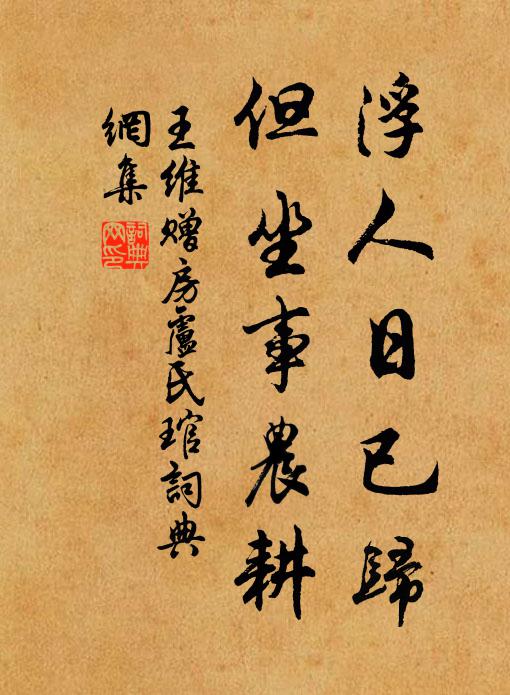 浮人日已歸
但坐事農耕
王維贈房盧氏琯詞典
網集
詞典網印